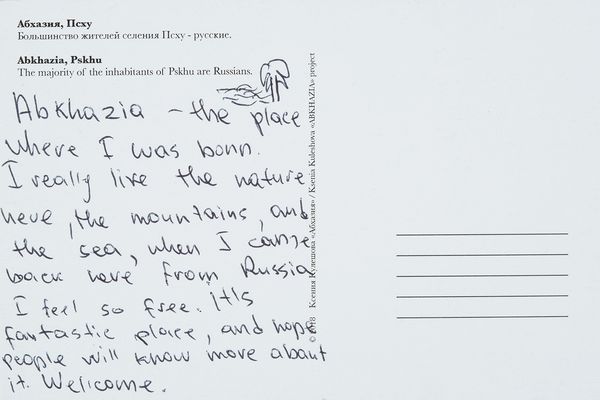 Абхазия, Псху
Большинство жителей селения Псху - русские.
Abkhazia, Pskhu
The majority of the inhabitants of Pskhu are Russians.
Abkhazia – the place
where I was born.
I really like the nature
here, the mountains, and
the sea, when I came
back here from Russia
I feel so free. It's
fantastic place, and hope
people will know more about
it. Welcome.
© 2018 Ксения Кулешова «Абхазия» / Ksenia Kuleshova «ABKHAZIA» project